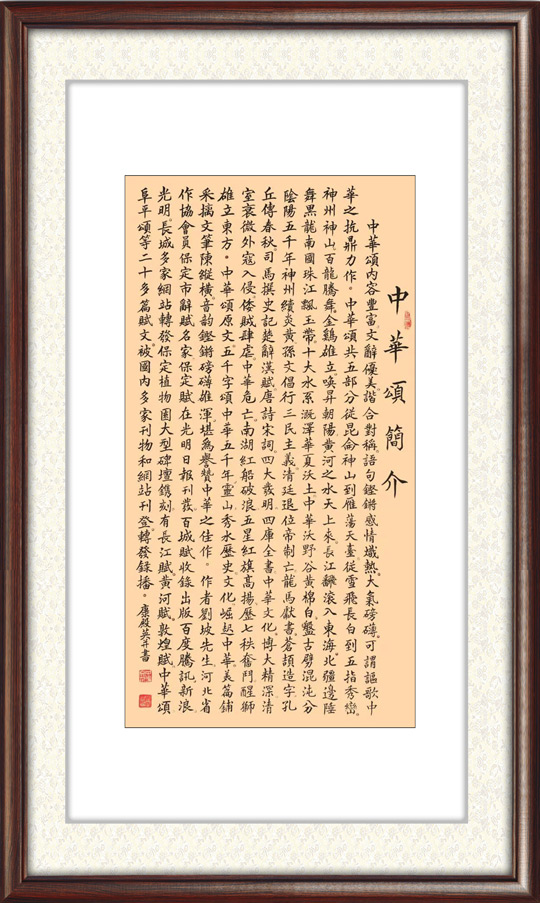 中華頌簡介
中華頌內容豐富文辭優美諧合對稱語句鏗鏘感情熾熱大氣磅礴可謂謳歌中
華之抗鼎力作。中華頌共五部分從昆侖神山到雁蕩天臺從雪飛長白到五指秀巒
神州神山百龍騰舞金鷄雄立喚昇朝陽黃河之水天上來長江飜滾入東海北疆邊陲
舞黑龍南國珠江飄玉帶十大水系溉澤華夏沃土中華沃野谷黃棉白盤古劈混沌分
陰陽五千年神州續炎黃孫文倡行三民主義清廷退位帝制亡龍馬獻書蒼頡造字孔
丘傳春秋司馬撰史記楚辭漢賦唐詩宋詞四大發明四庫全書中華文化博大精深清
室衰微外寇入侵倭賊肆虐中華危亡南湖紅船破浪五星紅旗高揚歷七秩奮鬥醒獅
雄立東方。中華頌原文五千字頌中華五千年靈山秀水歷史文化崛起中華美篇鋪
采摛文筆陳縱橫音韵鏗鏘磅礴雄渾堪爲譽贊中華之佳作。作者劉坡先生河北省
作協會員保定市辭賦名家保定賦在光明日報刊發百城賦收錄出版百度騰訊新浪
光明長城多家網站轉發保定植物園大型碑壇鐫刻有長江賦黃河賦敦煌賦中華頌
阜平頌等二十多篇賦文被國內多家刊物和網站刊登轉發錄播。
康殿英并書